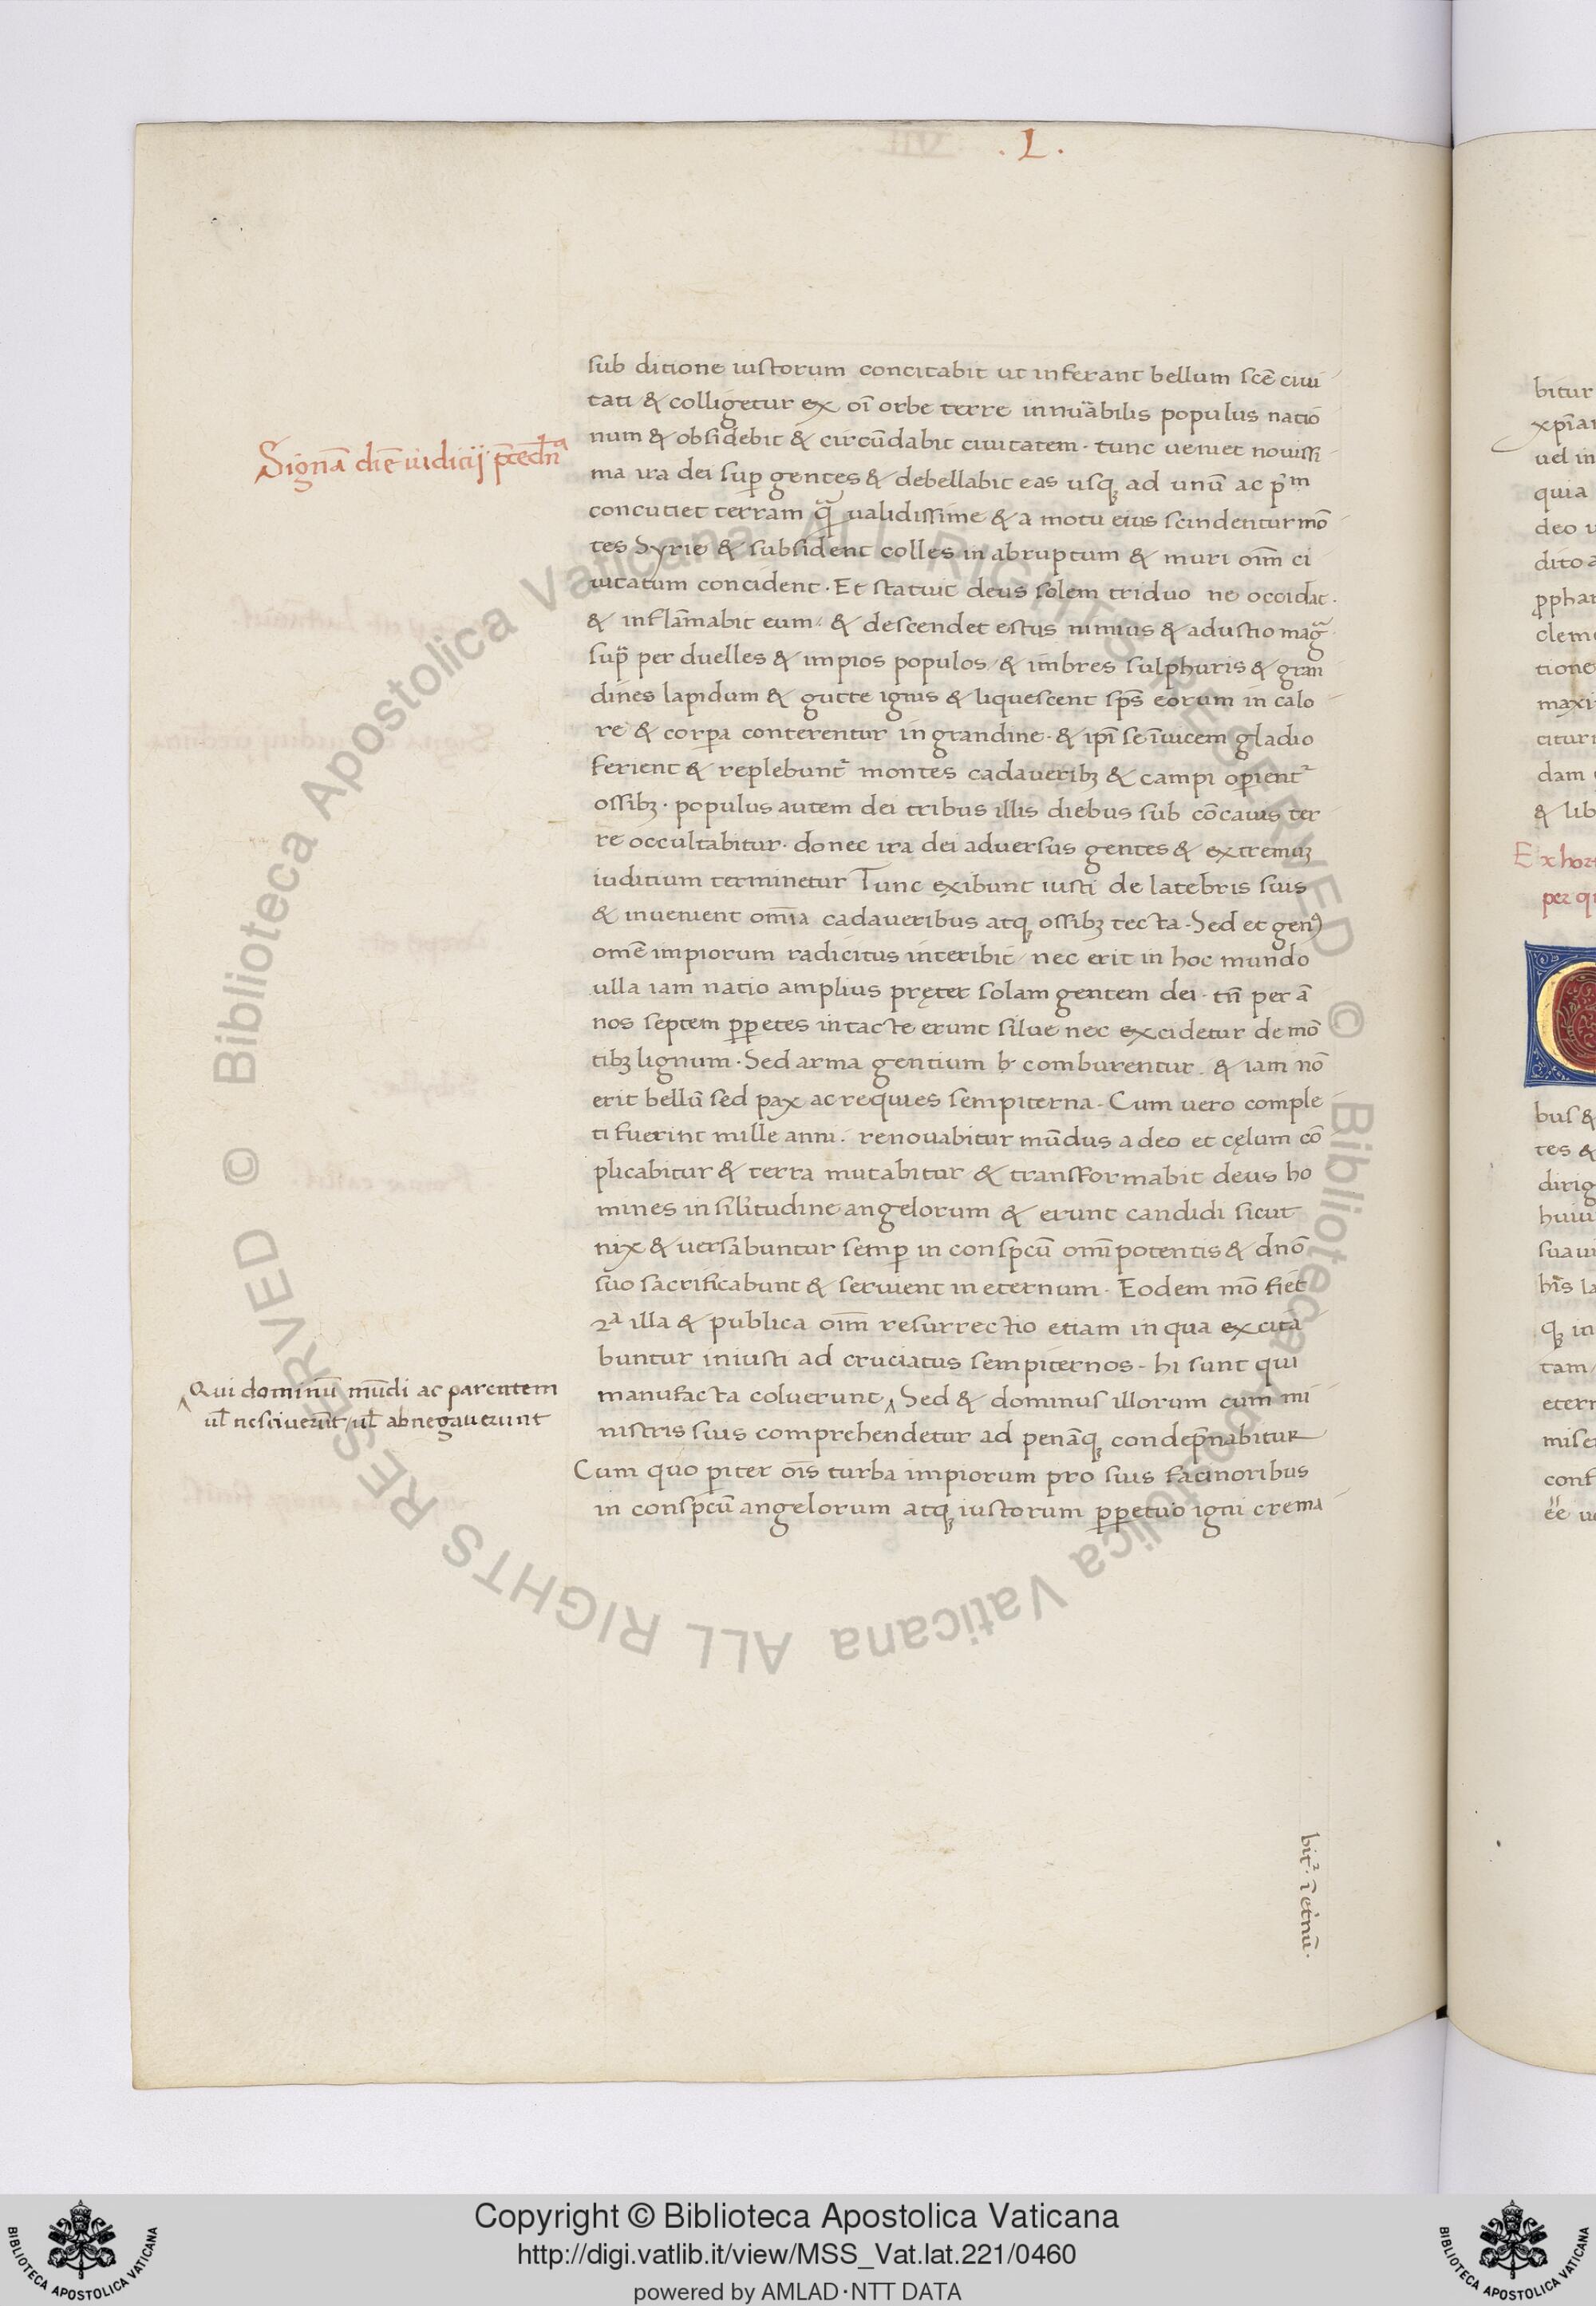 . L .
sub ditione iustorum concitabit ut inferant bellum scē ciui
tati & colligetur ex oī orbe terre innuābilis populus natio
num & obsidebit & circūdabit ciuitatem · tunc ueniet nouissi
Signā diē iuditij p̄cedn̄a
ma ira dei suꝑ gentes & debellabit eas usqꝫ ad unū ac pͥm
concutiet terram q̄ ualidissime & a motu eius scindentur mō
tes Syrie & subsident colles in abruptum & muri oīm ci
uitatum concident · Et statuit deus solem triduo ne occidat ·
& inflāmabit eum · & descendet estus nimius & adustio mag̃
sup̄ per duelles & impios populos / & imbres sulphuris & gran
dines lapidum & gutte ignis & liquescent sp̄s eorum in calo
re & corꝑa conterentur in grandine · & ip̄i se īuicem gladio
ferient & replebunt᷑ montes cadaueribꝫ & campi oꝑient᷑
ossibꝫ · populus autem dei tribus illis diebus sub cōcauis ter
re occultabitur · donec ira dei aduersus gentes & extremuꝫ
iuditium terminetur Tunc exibunt iusti de latebris suis
& inuenient om̄ia cadaueribus atqꝫ ossibꝫ tecta · Sed et genꝰ
omē impiorum radicitus interibit / nec erit in hoc mundo
ulla iam natio amplius pręter solam gentem dei · tn̄ per ā
nos septem ꝑꝑetes intacte erunt silue nec excidetur de mō
tibꝫ lignum · Sed arma gentium ƀ comburentur . & iam nō
erit bellū sed pax ac requies sempiterna · Cum uero comple
ti fuerint mille anni · renouabitur mūdus a deo et cęlum cō
plicabitur & terra mutabitur & transformabit deus ho
mines in silitudine angelorum & erunt candidi sicut
nix & uersabuntur semꝑ in conspcū om̄ipotentis & dn̄o
suo sacrificabunt & seruient in eternum · Eodem mō fiet
2ᵃ illa & publica oīm resurrectio etiam in qua excita
buntur iniusti ad cruciatus sempiternos · hi sunt qui
‸ Qui dominū mūdi ac parentem
ul̄ nesciuerūt / ul̄ abnegauerunt
manufacta coluerunt ‸ Sed & dominus illorum cum mi
nistris suis comprehendetur ad penāqꝫ condep̄nabitur
Cum quo piter oīs turba impiorum pro suis facinoribus
in conspcū angelorum atqꝫ iustorum ꝑꝑetuo igni crema
bit᷑ · ī et̄nū ·
bitur
xp̄ian
uel in
quia
deo u
dito a
clem
tione
maxi
citur
dam
& lib
Exhort
per q
bus &
tes &
dirig
huiu
suaui
qꝫ in
tam
etern
mise
conf
Copyright © Biblioteca Apostolica Vaticana
http://digi.vatlib.it/view/MSS_Vat.lat.221/0460
powered by AMLAD·NTT DATA
BIBLIOTECA APOSTOLICA VATICANA
BIBLIOTECA APOSTOLICA VATICANA
© Biblioteca Apostolica Vaticana ALL RIGHTS RESERVED
© Biblioteca Apostolica Vaticana ALL RIGHTS RESERVED